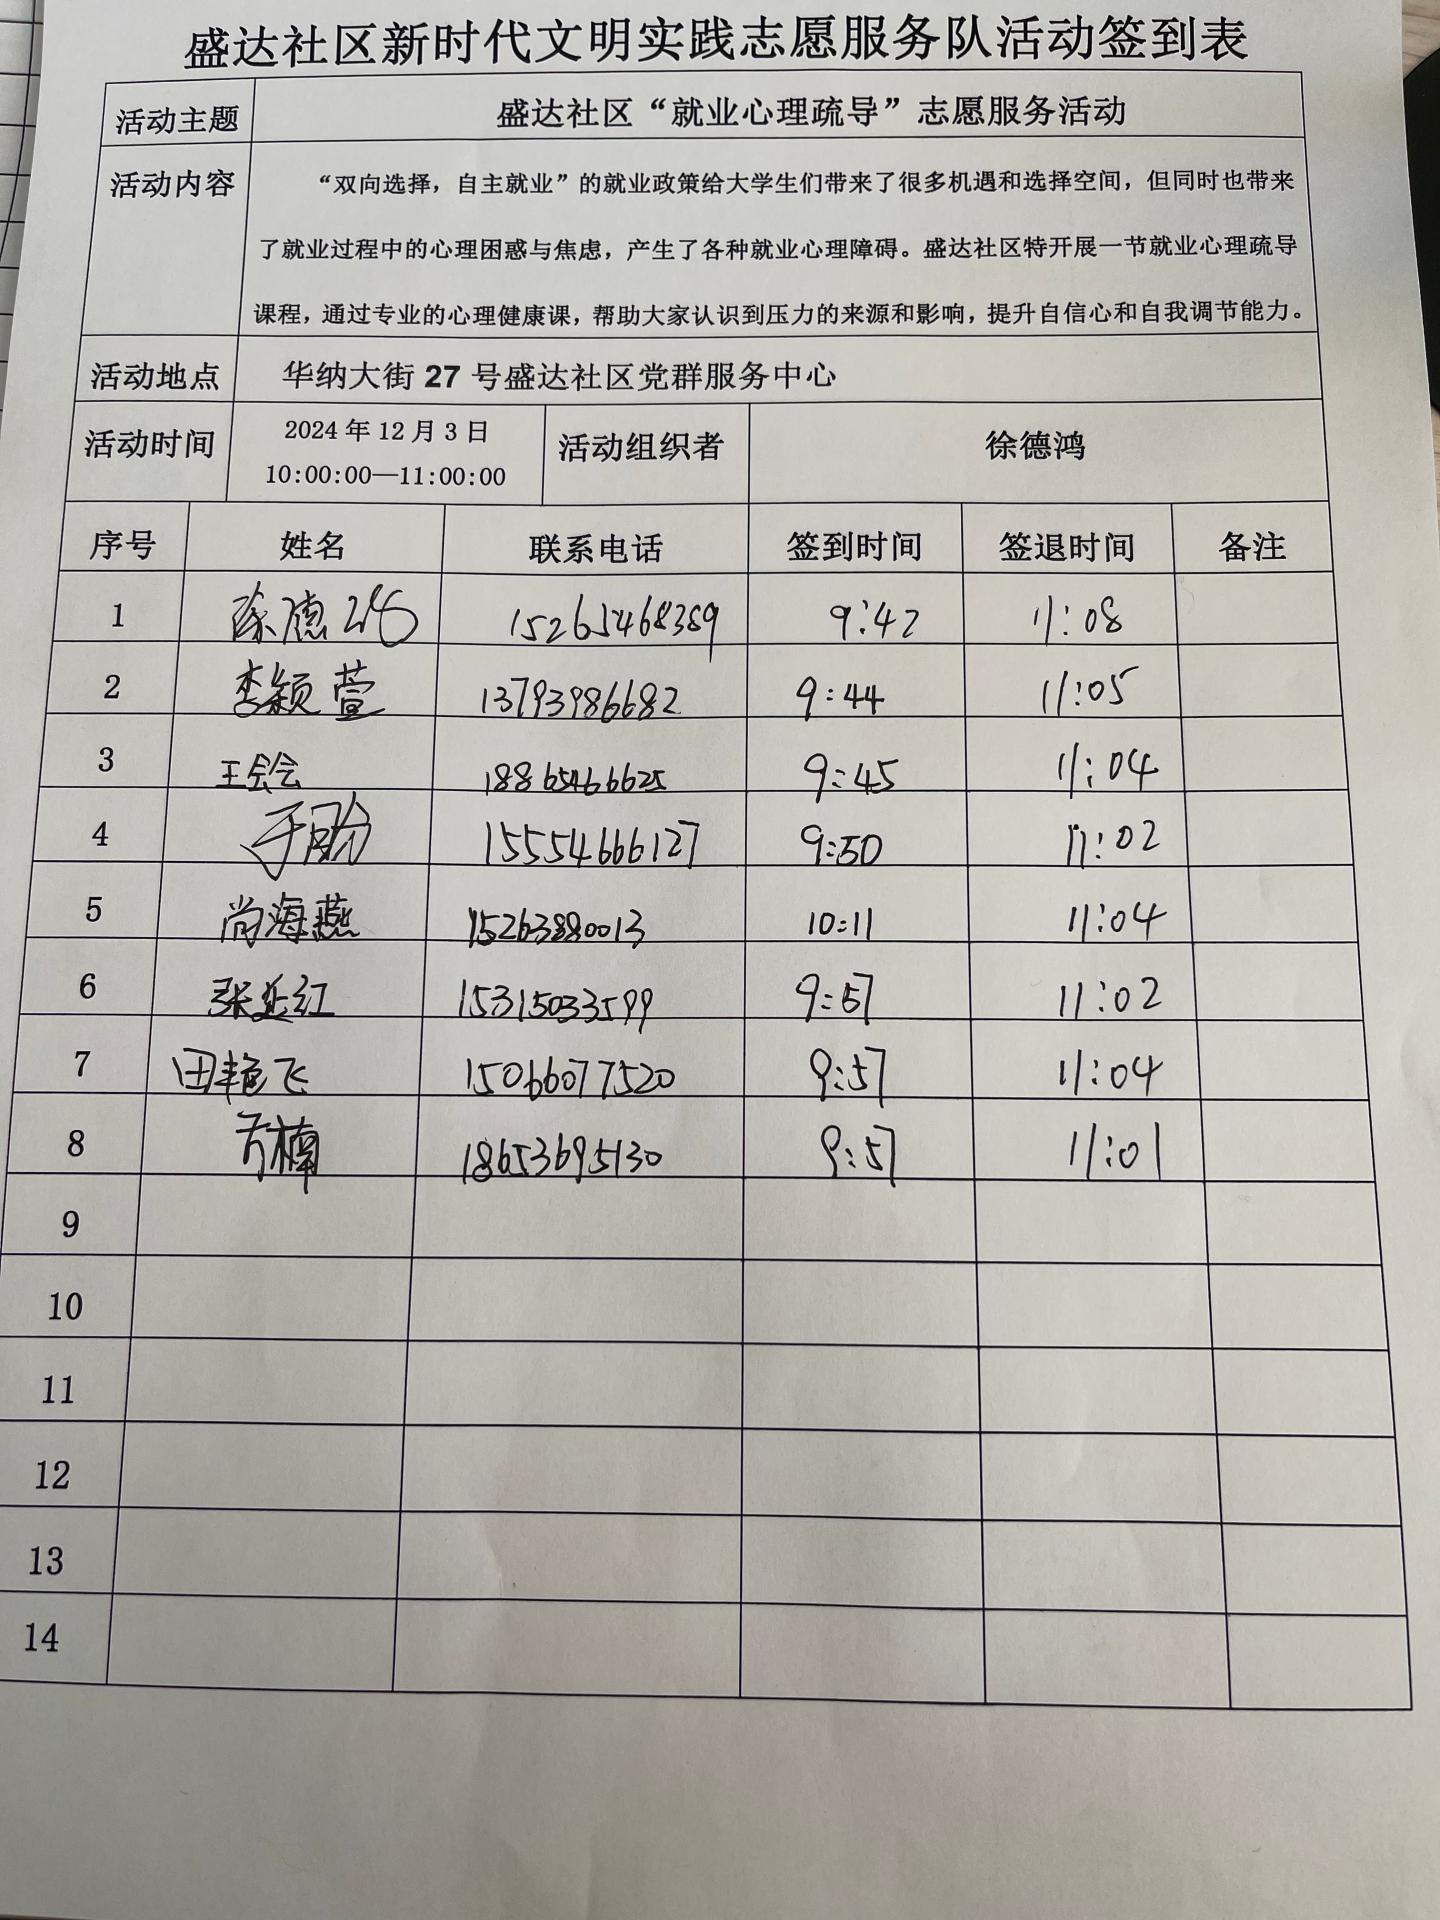 盛达社区新时代文明实践志愿服务队活动签到表
活动主题 盛达社区“就业心理疏导”志愿服务活动
活动内容 “双向选择，自主就业”的就业政策给大学生们带来了很多机遇和选择空间，但同时也带来
了就业过程中的心理困惑与焦虑，产生了各种就业心理障碍。盛达社区特开展一节就业心理疏导
课程，通过专业的心理健康课，帮助大家认识到压力的来源和影响，提升自信心和自我调节能力。
活动地点 华纳大街 27 号盛达社区党群服务中心
活动时间 2024 年 12 月 3 日 活动组织者 徐德鸿
10:00:00—11:00:00
序号 姓名 联系电话 签到时间 签退时间 备注
1 徐德鸿 15265468389 9:42 11:08
2 李颖萱 13793986682 9:44 11:05
3 王会会 18865466625 9:45 11:04
4 于盼 15554666127 9:50 11:02
5 尚海燕 15263880013 10:11 11:04
6 张延红 15315033599 9:57 11:02
7 田艳飞 15066077520 9:57 11:04
8 方楠 18653695130 9:57 11:01
9
10
11
12
13
14